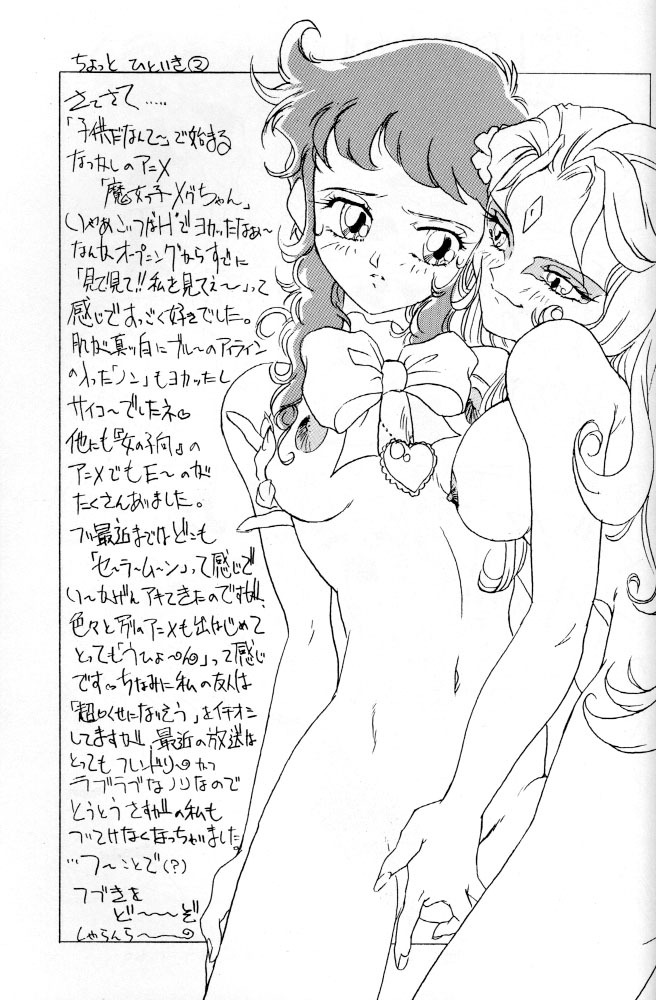 ちょっと ひといき②
さてさて……
「子供だなんて〜」で始まる
なつかしのアニメ
「魔女っ子メグちゃん」
いやあごっつなHでヨカッたなあ〜
なんせオープニングからすでに
「見て見て!!私を見てえ〜」って
感じですっごく好きでした。
肌が真ッ白にブルーのアイライン
の入った「ノン」もヨカッたし
サイコ〜でしたネ。
他にも『女の子向』の
アニメでもE〜のが
たくさんありました。
最近まではどこも
「セ〜ラ〜ム〜ン」って感じで
い〜かげんアキてきたのですが、
色々と別のアニメも出はじめて
とっても「うひょ〜ん」って感じ
です。ちなみに私の友人は
「超くせになりそう」をイチオシ
してますが、最近の放送は
とってもフレンドリーかつ
ラブラブなノリなので
とうとうさすがの私も
ついてけなくなっちゃいました。
…つ〜ことで(?)
つづきを
ど〜〜〜ぞ
しゃらんら〜〜